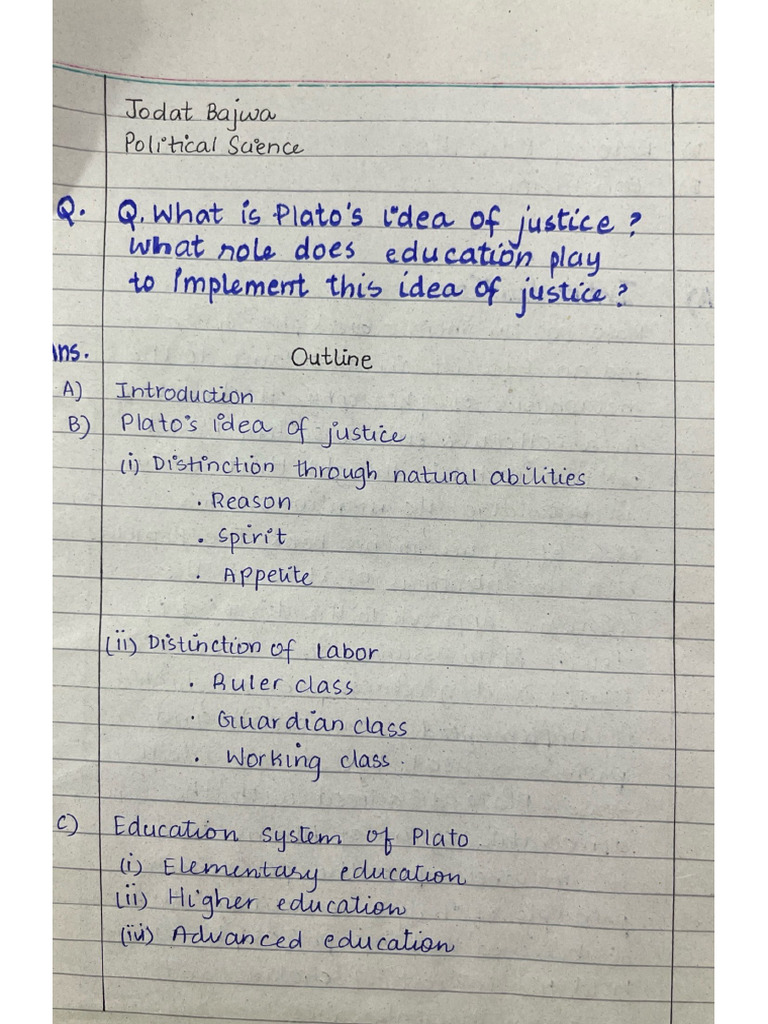 Jodat Bajwa
Political Science
Q. Q. What is Plato's idea of justice?
What role does education play
to implement this idea of justice?
Ans. Outline
A) Introduction
B) Plato's idea of justice
(i) Distinction through natural abilities
• Reason
• Spirit
• Appetite
(ii) Distinction of labor
• Ruler class
• Guardian class
• Working class.
C) Education system of Plato.
(i) Elementary education
(ii) Higher education
(iii) Advanced education